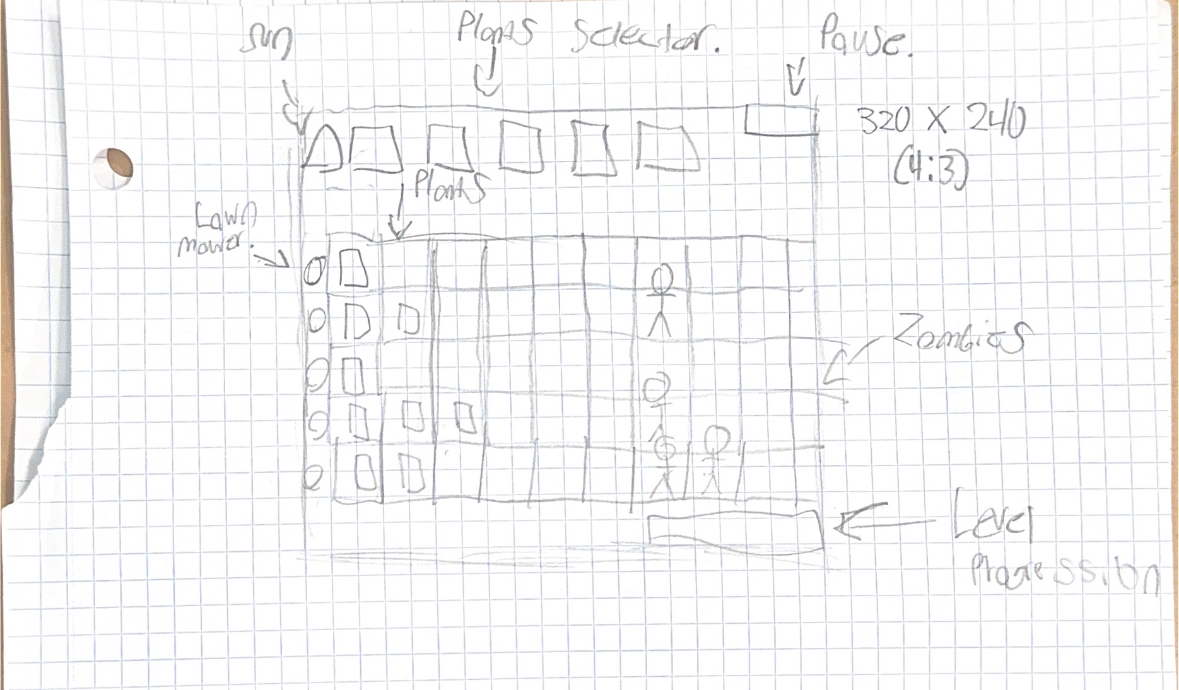 Sun
Plants Selector.
Pause.
320 X 240
(4:3)
Plants
Lawn
mower.
Zombies
Level
Progression